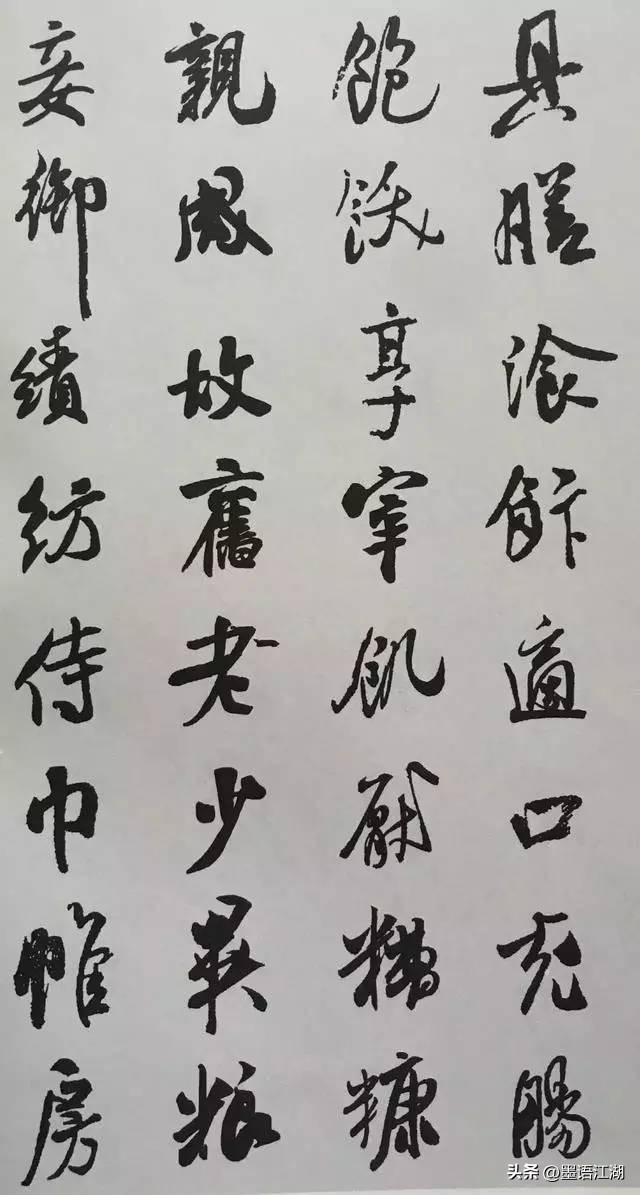 具膳湌飰適口充腸
飽飫享宰飢厭糟糠
親戚故舊老少異粮
妾御績紡侍巾帷房
头条 @墨语江湖